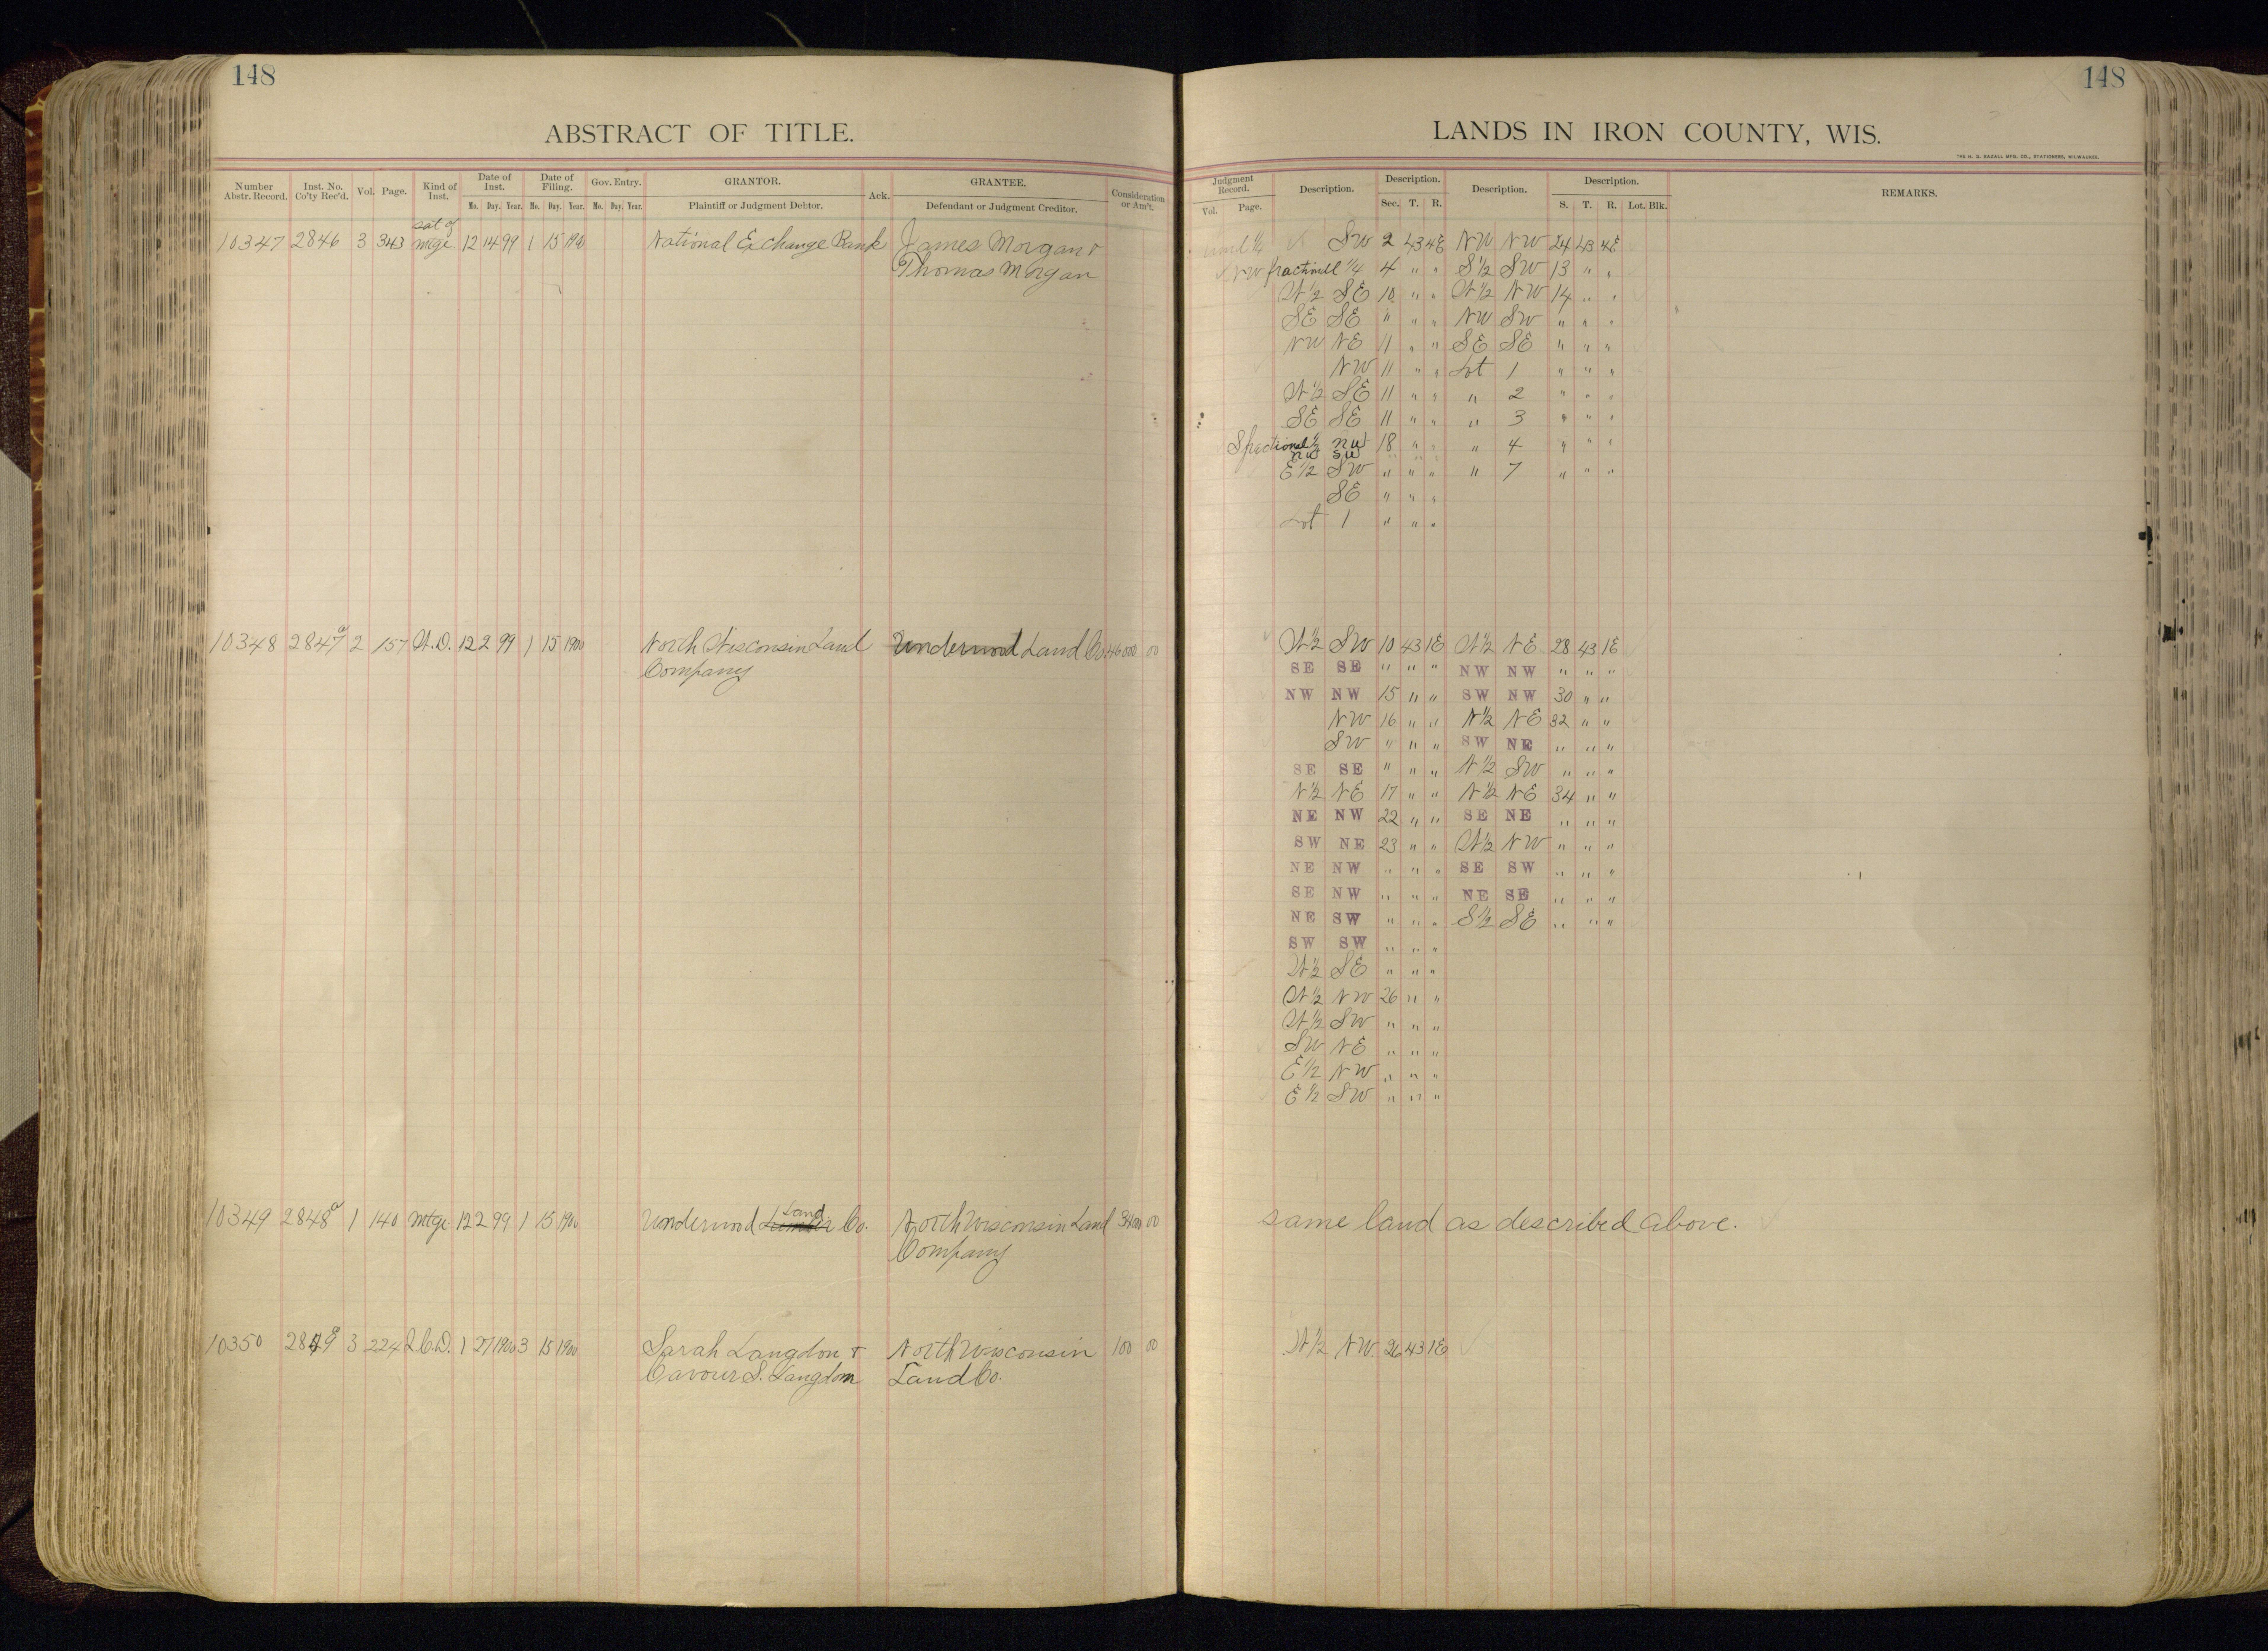 148
ABSTRACT OF TITLE.
Number Abstr. Record. Inst. No. Co'ty Rec'd. Vol. Page. Kind of Inst. Date of Inst. Mo. Day. Year. Date of Filing. Mo. Day. Year. Gov. Entry. Mo. Day. Year. GRANTOR. Plaintiff or Judgment Debtor. Ack. GRANTEE. Defendant or Judgment Creditor. Consideration or Am't.
sat of
10347 2846 3 343 mtge 12 14 99 1 15 1900 National Exchange Bank James Morgan &
Thomas Morgan
10348 2847a 2 157 W.D. 12 2 99 1 15 1900 North Wisconsin Land Underwood Land Co. 46000 00
Company
Land
10349 2848a 1 140 mtge 12 2 99 1 15 1900 Underwood Co. North Wisconsin Land 34000 00
Company
10350 2849 3 224 Q.C.D. 1 27 1900 3 15 1900 Sarah Langdon & North Wisconsin 100 00
Cavour S. Langdon Land Co.
148
LANDS IN IRON COUNTY, WIS.
THE H. G. RAZALL MFG. CO., STATIONERS, MILWAUKEE.
Judgment Record. Vol. Page. Description. Description. Sec. T. R. Description. Description. S. T. R. Lot. Blk. REMARKS.
und ½ SW 2 43 4E NW NW 24 43 4E
NW fractionell ¼ 4 " " S½ SW 13 " "
W½ SE 10 " " W½ NW 14 " "
SE SE " " " NW SW " " "
NW NE 11 " " SE SE " " "
NW 11 " " Lot 1 " " "
W½ SE 11 " " " 2 " " "
SE SE 11 " " " 3 " " "
S fractional ½ NW 18 " " " 4 " " "
NW SW " " "
E½ SW " " " " 7 " " "
SE " " "
Lot 1 " " "
W½ SW 10 43 1E W½ NE 28 43 1E
SE SE " " " NW NW " " "
NW NW 15 " " SW NW 30 " "
NW 16 " " N½ NE 32 " "
SW " " " SW NE " " "
SE SE " " " N½ SW " " "
N½ NE 17 " " N½ NE 34 " "
NE NW 22 " " SE NE " " "
SW NE 23 " " W½ NW " " "
NE NW " " " SE SW " " "
SE NW " " " NE SE " " "
NE SW " " " S½ SE " " "
SW SW " " "
W½ SE " " "
W½ NW 26 " "
W½ SW " " "
SW NE " " "
E½ NW " " "
E½ SW " " "
same land as described above.
W½ NW. 26 43 1E